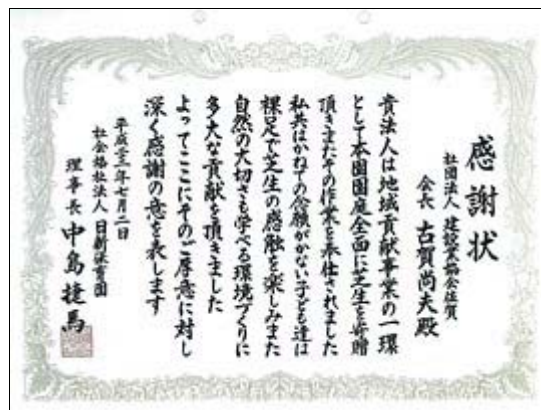 感謝状
社団法人 建設業協会佐賀
会長 古賀尚夫殿
貴法人は地域貢献事業の一環
として本園園庭全面に芝生を寄贈
頂きまたその作業を奉仕されました
私共はかねての念願がかない子ども達は
裸足で芝生の感触を楽しみまた
自然の大切さも学べる環境づくりに
多大な貢献を頂きました
よってここにそのご厚意に対し
深く感謝の意を表します
平成二三年七月二日
社会福祉法人 日新保育園
理事長 中島捷馬